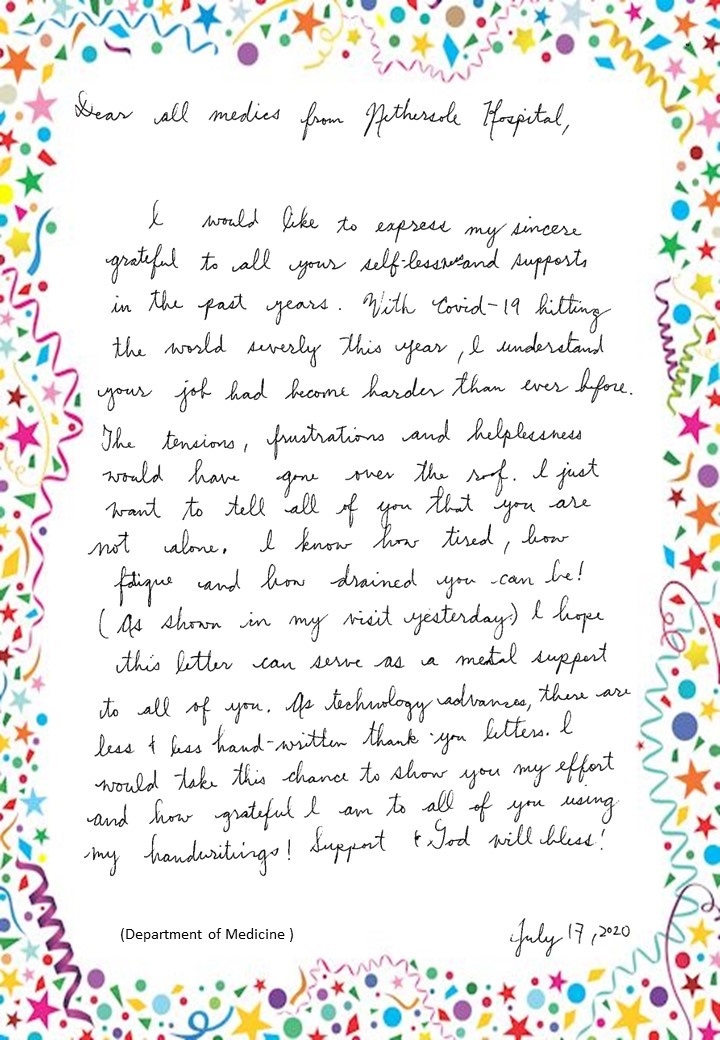 Dear all medics from Nethersole Hospital,
I would like to express my sincere
grateful to all your self-lessness and supports
in the past years. With Covid-19 hitting
the world severly this year, I understand
your job had become harder than ever before.
The tensions, frustrations and helplessness
would have gone over the roof. I just
want to tell all of you that you are
not alone. I know how tired, how
fatique and how drained you can be!
(As shown in my visit yesterday) I hope
this letter can serve as a mental support
to all of you. As technology advances, there are
less & less hand-written thank-you letters. I
would take this chance to show you my effort
and how grateful I am to all of you using
my handwritings! Support & God will bless!
(Department of Medicine )
July 17, 2020